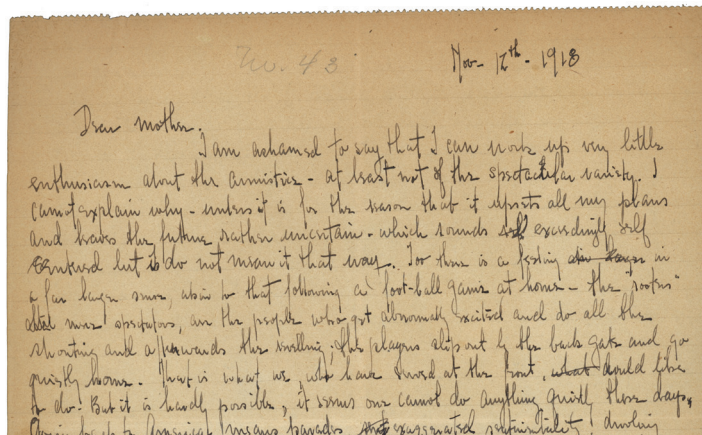 No. 43
Nov- 12th- 1918
Dear Mother.
I am ashamed to say that I can work up very little
enthusiasm about the armistice - at least not of the spectacular variety. I
cannot explain why - unless it is for the reason that it upsets all my plans
and leaves the future rather uncertain - which sounds exceedingly self
but do not mean it that way. Too there is a feeling in
a far larger sense, akin to that following a foot-ball game at home - the "rooters"
mere spectators, are the people who get abnormally excited and do all the
shouting and afterwards the, the players slip out by the back gate and go
quietly home. That is what we, who have served at the front, would like
to do. But it is hardly possible, it seems one cannot do anything quietly these days,
back to America means parades exaggerated sentimentality, drooling